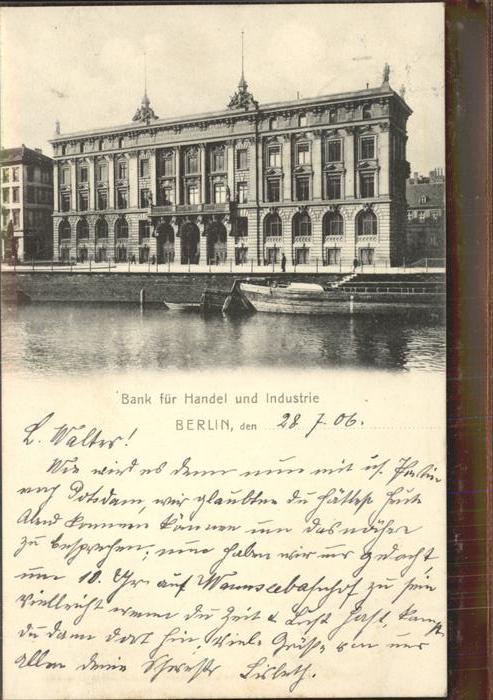 Bank für Handel und Industrie
BERLIN, den 28 7. 06.
L. Walter!
Wie wird es denn nun mit us. Partie
nach Potsdam, wir glaubten du hättest heute
Abend kommen können um das nähere
zu besprechen; nun haben wir uns gedacht,
um 10. Uhr auf Wannseebahnhof zu sein
vielleicht wenn du Zeit & Lust hast, kannst
du dann dort hin, viele Grüße von uns
allen deine Schwester Lisbeth.